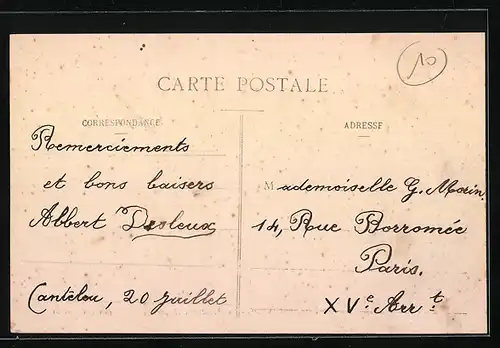 10
CARTE POSTALE
CORRESPONDANCE
ADRESSE
Remerciements
et bons baisers
Albert Desleux
Cantelou, 20 Juillet
Mademoiselle G. Morin.
14, Rue Borromée
Paris.
XVe Arrt